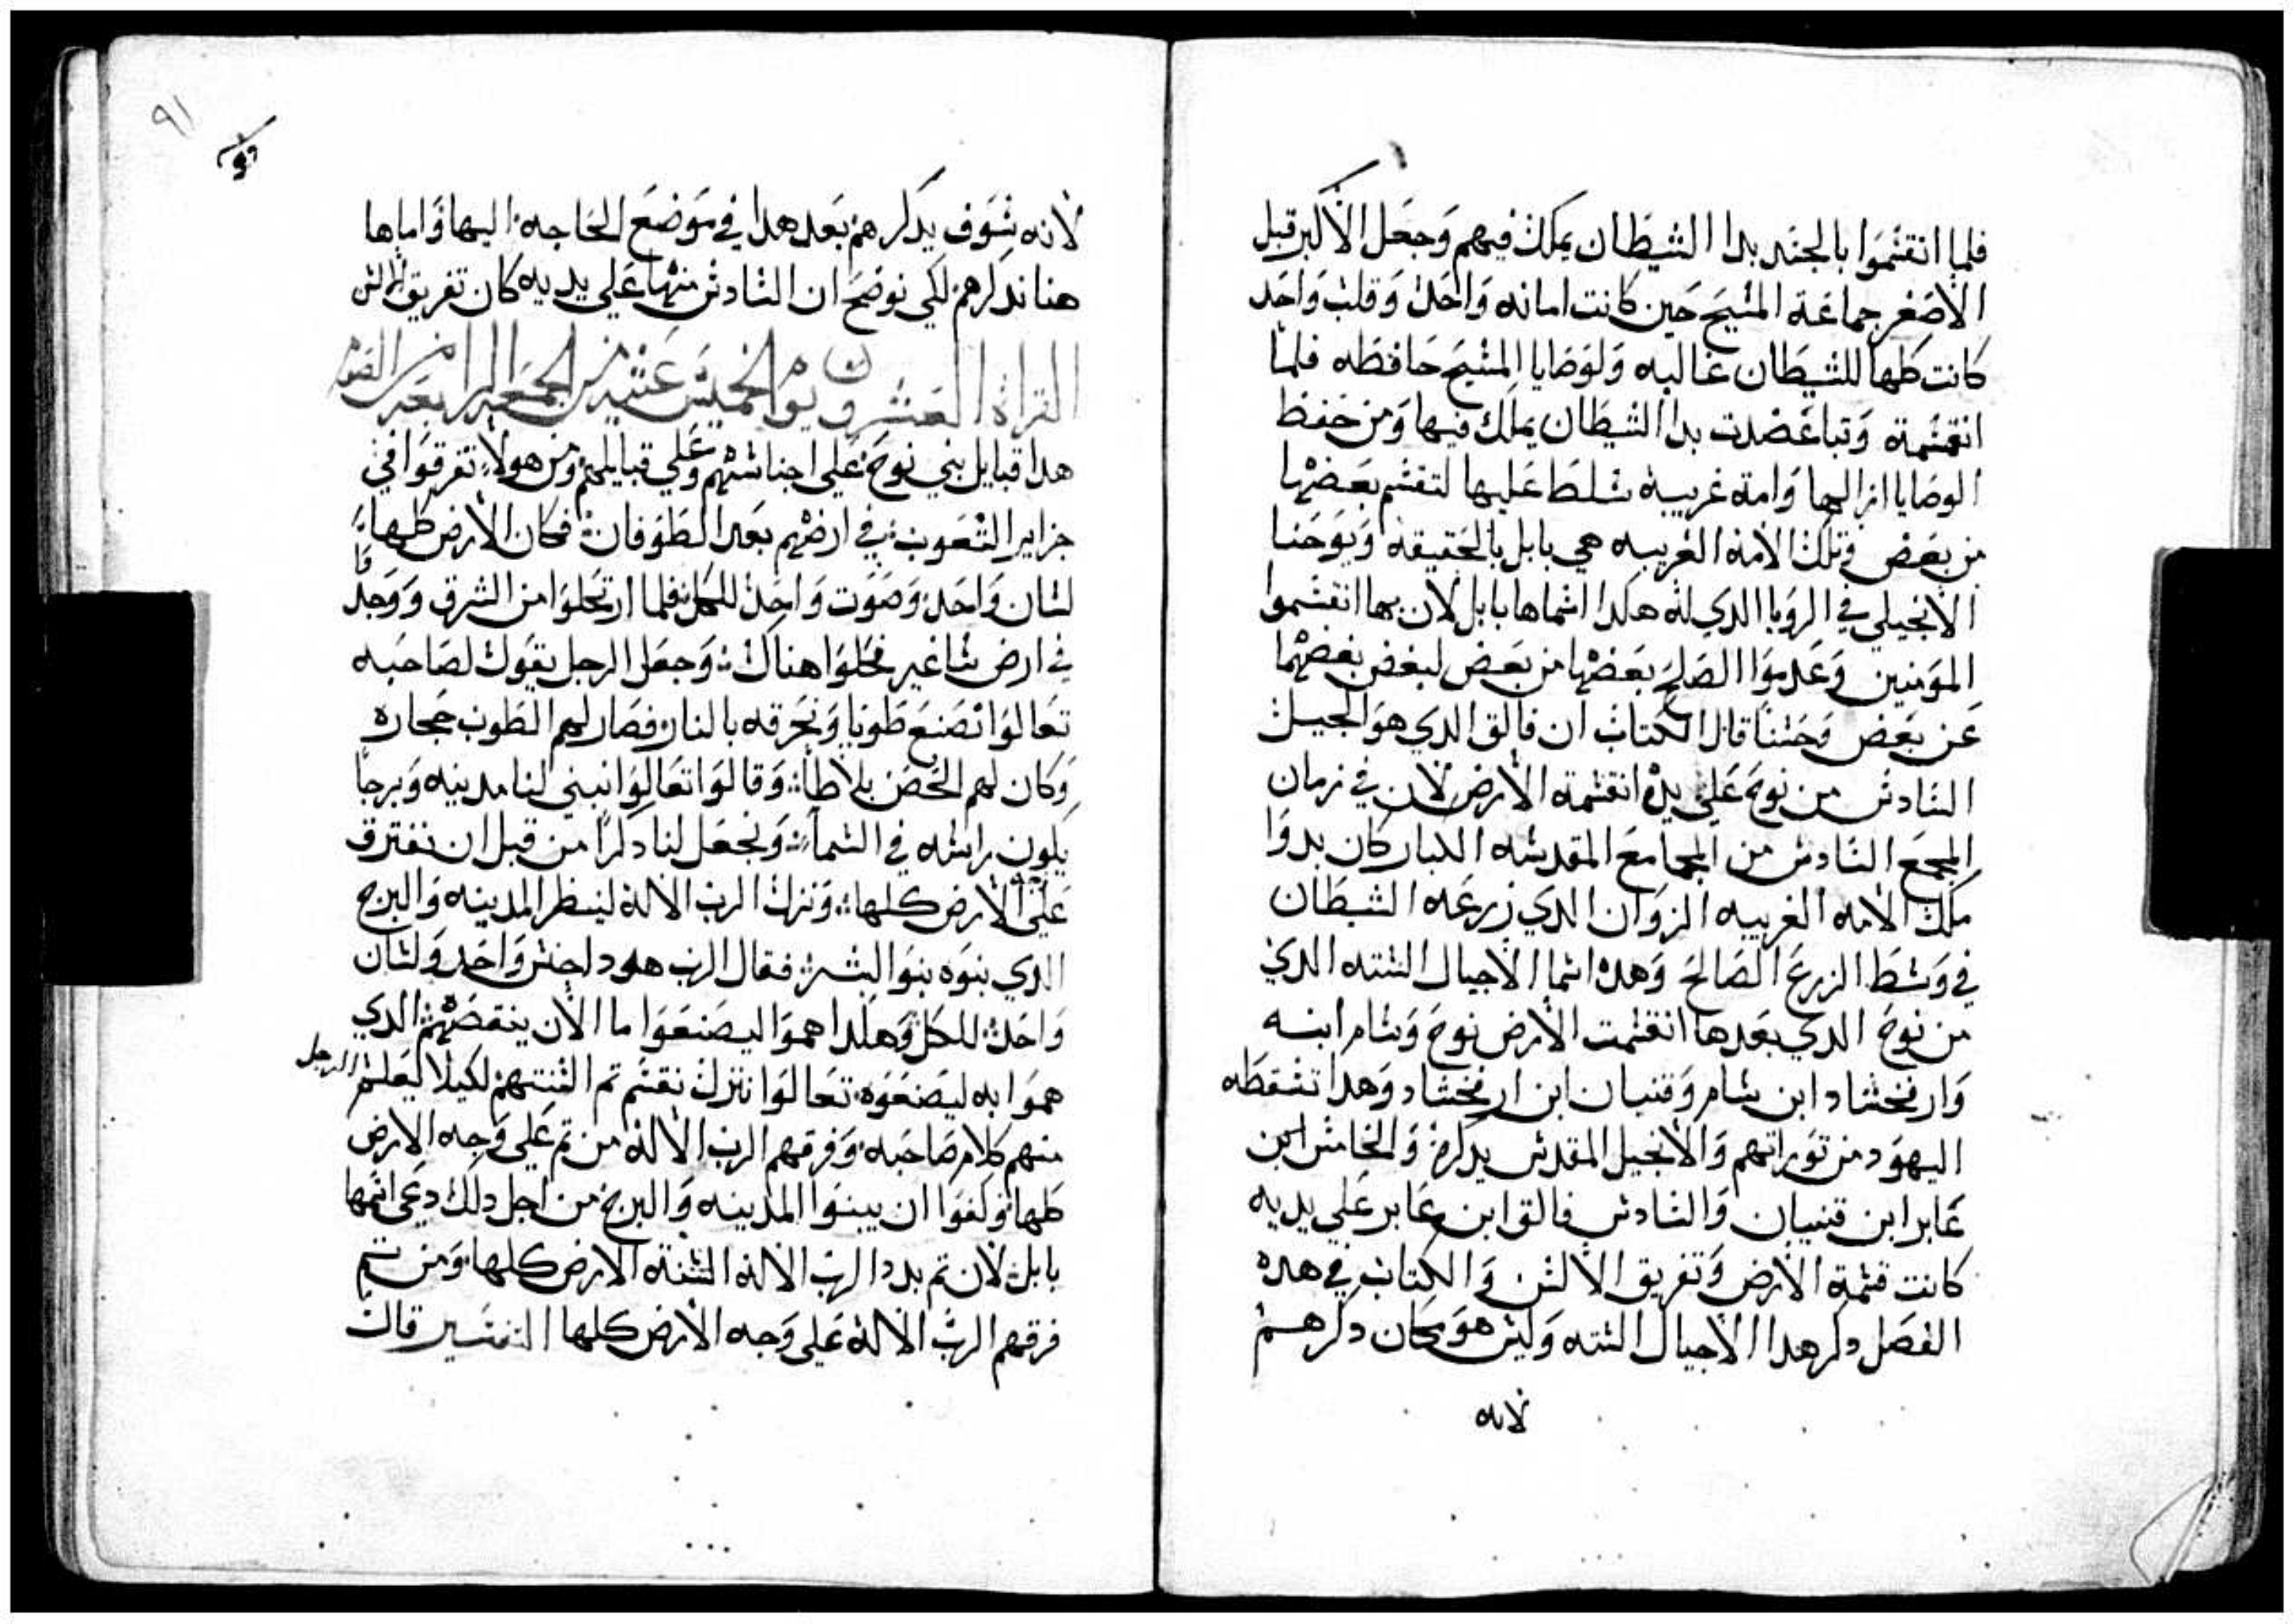 فلما انقسموا بالجند بدا الشيطان يملك فيهم وجعل الأكبر قبل
الاصغر جماعة المسيح حين كانت امانه واحدة وقلب واحد
كانت كلها للشيطان غالبه ولوصايا المسيح حافظه فلما
انقسمة وتباغضت بدا الشيطان يملك فيها ومن حفظ
الوصايا ازالها وامة غريبة سلط عليها لتقسم بعضها
من بعض وتلك الامة الغريبه هي بابل بالحقيقه ويوحنا
الانجيلي في الرويا الذي له هكدا اسماها بابل لان بها انقسموا
المومنين وعدموا الصلح بعضها من بعض لبغض بعضهما
عن بعض وحسنا قال الكتاب ان فالق الدي هو الجيل
السادس من نوح على يده انقسمة الارض لان في زمان
المجمع السادس من المجامع المقدسه الكبار كان بدوا
ملك الامه الغريبه الزوان الدي زرعه الشيطان
في وسط الزرع الصالح وهده اسما الاجيال السته الدي
من نوح الدي بعدها انقسمت الارض نوح وسام ابنه
وارفخشاد ابن سام وقنيان ابن ارفخشاد وهدا تسقطه
اليهود من توراتهم والانجيل المقدس يدكره والخامس ابن
عابر ابن قنيان والسادس فالق ابن عابر على يديه
كانت قسمة الارض وتفريق الالسن والكتاب في هده
الفصل دكر هدا الاجيال السته وليس هو مكان دكرهم
لانه
٩١
لانه سوف يدكرهم بعد هدا في موضع الحاجه اليها واماها
هنا ندكرهم لكي نوضح ان السادس منها على يديه كان تفريق الالسن
القراة العشرون يوم الخميس عشية من الجمعة الرابعة من الصوم
هدا قبايل بني نوح على اجناسهم وعلى قبايلهم ومن هولاء تفرقوا في
جزاير الشعوب في ارضهم بعد الطوفان فكان الارض كلها
لسان واحد وصوت واحد للكل فلما ارتحلوا من الشرق ووجدوا
في ارض شاغير فحلوا هناك وجعل الرجل يقول لصاحبه
تعالوا نصنع طوبا ونحرقه بالنار فصار لهم الطوب حجاره
وكان لهم الحص بلاطا وقالوا تعالوا نبني لنا مدينه وبرجا
يكون راسه في السما ونجعل لنا دكرا من قبل ان نفترق
على الارض كلها ونزل الرب الاله لينظر المدينه والبرج
الدي بنوه بنوا البشر فقال الرب هودا جنس واحد ولسان
واحد للكل وهكدا هموا ليصنعوا ما الان ينقصهم الدي
هموا به ليصنعوه تعالوا ننزل نقسم تم السنتهم لكيلا يعلم الرجل
منهم كلام صاحبه وفرقهم الرب الاله من تم على وجه الارض
كلها وكفوا ان يبنوا المدينه والبرج من اجل دلك دعى اسمها
بابل لان تم بدد الرب الاله السنة الارض كلها ومن تم
فرقهم الرب الاله على وجه الارض كلها التفسير قال